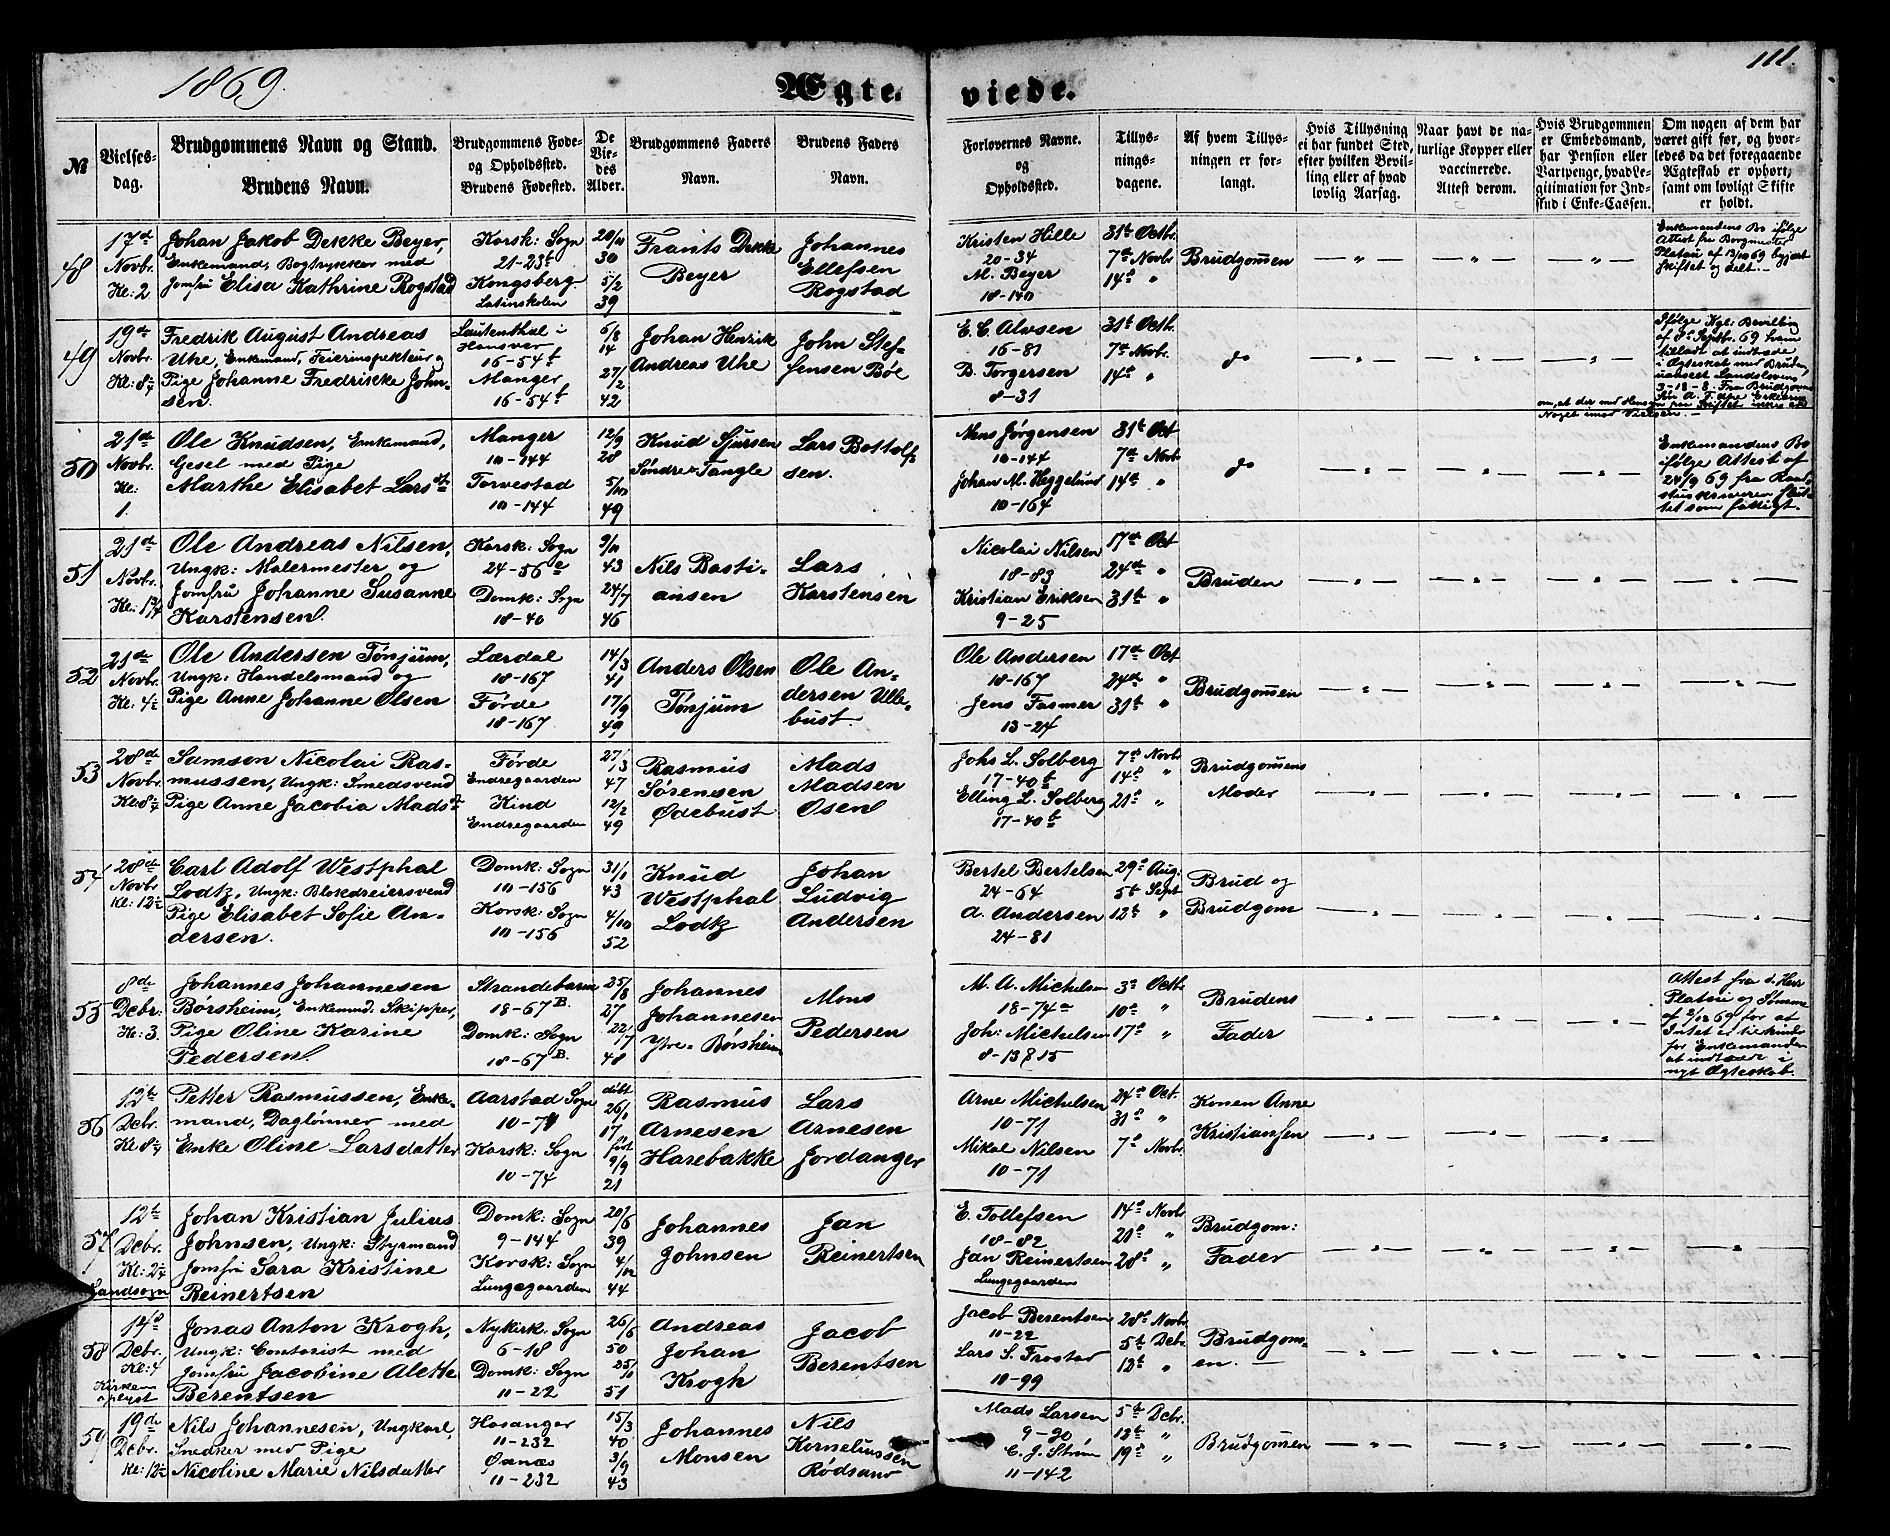 1869.
Ægte-
viede.
111.
№
Vielses-
dag.
Brudgommens Navn og Stand.
Brudens Navn.
Brudgommens Føde-
og Opholdssted.
Brudens Fødested.
De
Vie-
des
Alder.
Brudgommens Faders
Navn.
Brudens Faders
Navn.
Forlovernes Navne.
og
Opholdssted.
Tillys-
nings-
dagene.
Af hvem Tillys-
ningen er for-
langt.
Hvis Tillysning
ei har fundet Sted,
efter hvilken Bevil-
ling eller af hvad
lovlig Aarsag.
Naar havt de na-
turlige Kopper eller
vaccinerede.
Attest derom.
Hvis Brudgommen
er Embedsmand,
har Pension eller
Vartpenge, hvad Le-
gitimation for Ind-
skud i Enke-Cassen.
Om nogen af dem har
været gift før, og hvor-
ledes da det foregaaende
Ægteskab er ophørt,
samt om lovligt Skifte
er holdt.
48
17de
Novbr.
Kl: 2
Johan Jakob Dekke Beyer,
Enkemand, Bogtrykker med
Jomfru Elisa Kathrine Rogstad
Korsk: Sogn
21-23b
Kongsberg
Latinskolen
20/11
30
5/2
39
Frants Dekke
Beyer
Johannes
Ellefsen
Rogstad
Kristen Hille
20-34
M. Beyer
18-140
31te Octbr.
7de Novbr
14de "
Brudgommen
Enkemandens Bo ifølge
Attest fra Borgmester
Platou af 13/10 69 begjært
skiftet og delt.
49
19de
Novbr.
Fredrik August Andreas
Uhe, Enkemand, Feierinspekteur og
Pige Johanne Fredrikke John-
sen.
Lautenthal i
Hansver
16-54b
Manger
16-54b
6/8
14
27/2
42
Johan Henrik
Andreas Uhe
John Stef-
fensen Bøe
E. C. Alvsen
16-81
B. Torgersen
8-31
31te Octbr.
7de Novbr.
14de "
do
Ifølge Kgl: Bevilling
af 8de Septbr. 69 ham
tilladt at indtræde
i Ægteskab med Bruden,
uanset Landslovens
3-18-8.
50
21de
Novbr.
Kl:
1.
Ole Knudsen, Enkemand,
Gesel med Pige
Marthe Elisabet Larsdtr
Manger
10-144
Torvestad
10-144
12/9
28
5/10
49
Knud Sjursen
Søndre Tangle
Lars Bottolf-
sen.
Mons Jørgensen
10-144
Johan M. Heggelund
10-164
31te Oct
7de Novb
14de "
do
Enkemandens Bo
ifølge Attest af
24/9 69 fra Raad-
stueskriveren slut-
tet som fattigt.
51
21de
Novbr.
Kl: 1 3/4
Ole Andreas Nilsen,
Ungk: Malermester og
Jomfru Johanne Susanne
Karstensen
Korsk: Sogn
24-56c
Domk: Sogn
18-40
9/11
43
24/7
46
Nils Basti-
ansen
Lars
Karstensen
Nicolai Nilsen
18-83
Kristian Eriksen
9-25
17de Oct
24de "
31te "
Bruden
52
21de
Novbr.
Kl: 4 1/2
Ole Andersen Tønjum,
Ungk: Handelsmand og
Pige Anne Johanne Olsen
Lærdal
18-167
Førde
18-167
14/3
41
17/9
49
Anders Olsen
Tønjum
Ole An-
dersen Ulle-
bust.
Ole Andersen
18-167
Jens Fasmer
13-24
17de Oct
24de "
31te "
Brudgommen
53
28de
Novbr.
Samson Nicolai Ras-
mussen, Ungk: Smedsvend
Pige Anne Jacobia Madsdtr
Førde
Endregaarden
Kind
Endregaarden
27/3
47
12/2
49
Rasmus
Sørensen
Ødebust
Mads
Madsen
Osen
Johs L. Solberg
17-40b
Elling L. Solberg
17-40b
7de Novbr
14de "
21de "
Brudgommens
Moder
54
28de
Novbr
Kl: 12 1/2
Carl Adolf Westphal
Lodtz, Ungk: Blokdreiersvend
Pige Elisabet Sofie An-
dersen.
Domk: Sogn
10-156
Korsk: Sogn
10-156
31/1
43
4/10
52
Knud
Westphal
Lodtz
Johan
Ludvig
Andersen
Bertel Bertelsen
24-64
A. Andersen
24-81
29de Aug:
5te Sept
12te "
Brud og
Brudgom
55
8de
Decbr:
Kl: 3.
Johannes Johannesen
Børsheim, Enkemnd. Skipper,
Pige Oline Karine
Pedersen
Strandebarm
18-67B.
Domk: Sogn
18-67B.
25/8
27
22/7
48
Johannes
Johannesen
Ytre-Børsheim
Mons
Pedersen
M. A. Michelsen
18-74a
Joh: Michelsen
8-13&15
3de Octbr
10de "
17de "
Brudens
Fader
Attest fra d. Herr
Platou og Sømme
af 2/12 69 for at
Intet er til Hinder
for Enkemanden
at indtræde i
nyt Ægteskab.
56
12te
Decbr.
Petter Rasmussen, Enke-
mand, Daglønner med
Enke Oline Larsdatter
Aarstad Sogn
10-71
Korsk: Sogn
10-74
døbt
26/1
17
født
9/9
21
Rasmus
Arnesen
Harebakke
Lars
Arnesen
Jordanger
Arne Michelsen
10-71
Mikal Nilsen
10-71
24de Oct.
31te "
7de Novbr.
Konen Anne
Kristiansen
57
12te
Decbr.
Landsogn
Johan Kristian Julius
Johnsen, Ungk: Styrmand
Jomfru Sara Kristine
Reinertsen
Domk: Sogn
9-144
Korsk: Sogn
Lungegaarden
20/6
39
4/12
44
Johannes
Johnsen
Jan
Reinertsen
E. Tollefsen
18-82
Jan Reinertsen
Lungegaarden
14de Novbr
21de "
28de "
Brudgom:
Fader
58
14de
Decbr.
Kl: 4
Kirken
oplyst
Jonas Anton Krogh,
Ungk: Contorist med
Jomfru Jacobine Alette
Berentsen
Nykirk: Sogn
6-18
Domk: Sogn
11-22
26/6
50
25/11
51
Andreas
Johan
Krogh
Jacob
Berentsen
Jacob Berentsen
11-22
Lars S. Frostad
10-99
28de Novbr.
5te Decbr.
12te "
Brudgom-
en.
59
19de
Decbr.
Kl: 12 1/2
Nils Johannesen, Ungkarl,
Snedker med Pige
Nicoline Marie Nilsdatter
Hosanger
11-232
Øxnæs
11-232
15/3
40
3/9
43
Johannes
Monsen
Nils
Korneliussen
Rødsand
Mads Larsen
9-20
C. J. Strøm
11-142
5te Decbr.
12te "
19de "
Brudgommen